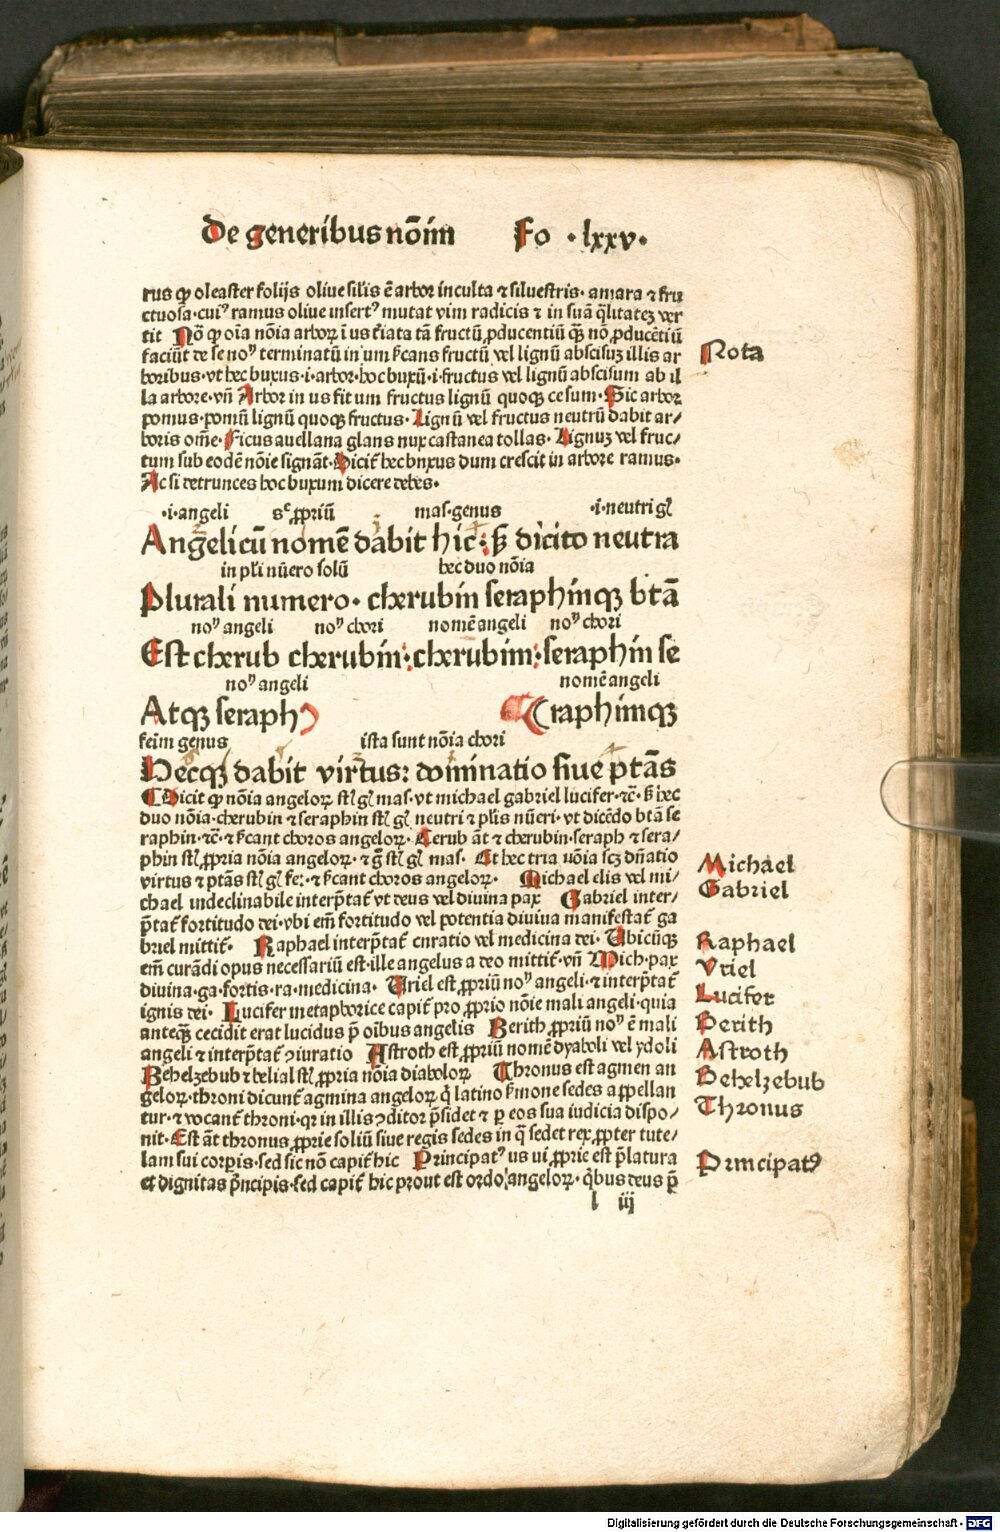 De generibus nōim Fo · lxxv·
rus qꝫ oleaster folijs oliue sil'is ē arbor inculta ⁊ siluestris· amara ⁊ fru
ctuosa· cuiꝰ ramus oliue insertꝰ mutat vim radicis ⁊ in suā q̄litateꝫ ver
tit Nō ꝙ oīa nōia arboꝝ ī us t'iata tā fructū ꝓducentiū qꝫ nō ꝓducētiū
faciūt de se noᵐ terminatū in um s̄cans fructū vel lignū abscisuꝫ illis ar
boribus· vt hec buxus·i·arbor·hoc buxū·i·fructus vel lignū abscisum ab il
la arbore·vn̄ Arbor in us fit um fructus lignū quoqꝫ cesum· Sic arbor
pomus·pomū lignū quoqꝫ fructus· Lignū vel fructus neutrū dabit ar/
boris om̄e· Ficus auellana glans nux castanea tollas· Lignuꝫ vel fruc/
tum sub eodē nōie signāt· Dicit' hec buxus dum crescit in arbore ramus·
Ac si detrunces hoc buxum dicere debes·
·i·angeli sᶜ ꝓpriū mas·genus ·i·neutri gꝉ
Angelicū nomē dabit hic: sꝫ dicito neutra
in pl'i nūero solū hec duo nōia
Plurali numero· cherubin seraphinqꝫ btā
noᵐ angeli noᵐ chori nomē angeli noᵐ chori
Est cherub cherubin: cherubim: seraphin se
noᵐ angeli nomē angeli
Atqꝫ seraph (raphimqꝫ
feim genus ista sunt nōia chori
Hecqꝫ dabit virtus: dominatio siue p̄tās
Dicit ꝙ nōia angeloꝝ st' gꝉ mas· vt michael gabriel lucifer·⁊c̄· sꝫ hec
duo nōia·cherubin ⁊ seraphin st' gꝉ neutri ⁊ pl'is nūeri· vt dicēdo btā se
raphin·⁊c̄·⁊ s̄cant choros angeloꝝ· Cerub āt ⁊ cherubin·seraph ⁊ sera/
phin st' ꝓpria nōia angeloꝝ· ⁊ g̊ st' gꝉ mas· Et hec tria nōia scꝫ dn̄atio
virtus ⁊ ptās st' gꝉ fe:·⁊ s̄cant choros angeloꝝ· Michael elis vel mi/
chael indeclinabile interp̄tat' vt deus vel diuina pax Gabriel inter/
p̄tat' fortitudo dei·vbi em̄ fortitudo vel potentia diuina manifestat' ga
briel mittit'· Raphael interp̄tat' curatio vel medicina dei· Ubicūqꝫ
em̄ curādi opus necessariū est·ille angelus a deo mittit'·vn̄ Mich·pax
diuina·ga·fortis·ra·medicina· Uriel est ꝓpriū noᵐ angeli·⁊ interp̄tat'
ignis dei· Lucifer metaphorice capit' pro ꝓprio nōie mali angeli·quia
anteqꝫ cecidit erat lucidus p̄ oībus angelis Berith ꝓpriū noᵐ ē mali
angeli ⁊ interp̄tat' ꝯiuratio Astroth est ꝓpriū nomē dyaboli vel ydoli
Behelzebub ⁊ belial st' ꝓpria nōia diaboloꝝ Thronus est agmen an
geloꝝ·throni dicunt' agmina angeloꝝ q' latino s'mone sedes appellan
tur·⁊ vocant' throni·qꝛ in illis ꝯditor p̄sidet ⁊ ꝑ eos sua iudicia dispo/
nit·Est āt thronus ꝓprie soliū siue regis sedes in q̄ sedet rex ꝓpter tute/
lam sui corꝑis·sed sic nō capit' hic Principatꝰ us ui ꝓprie est p̄latura
et dignitas p̄ncipis·sed capit' hic prout est ordo angeloꝝ· q'bus deus p̄
l iij
Nota
Michael
Gabriel
Raphael
Vriel
Lucifer
Berith
Astroth
Behelzebub
Thronus
Principatꝰ
Digitalisierung gefördert durch die Deutsche Forschungsgemeinschaft - DFG